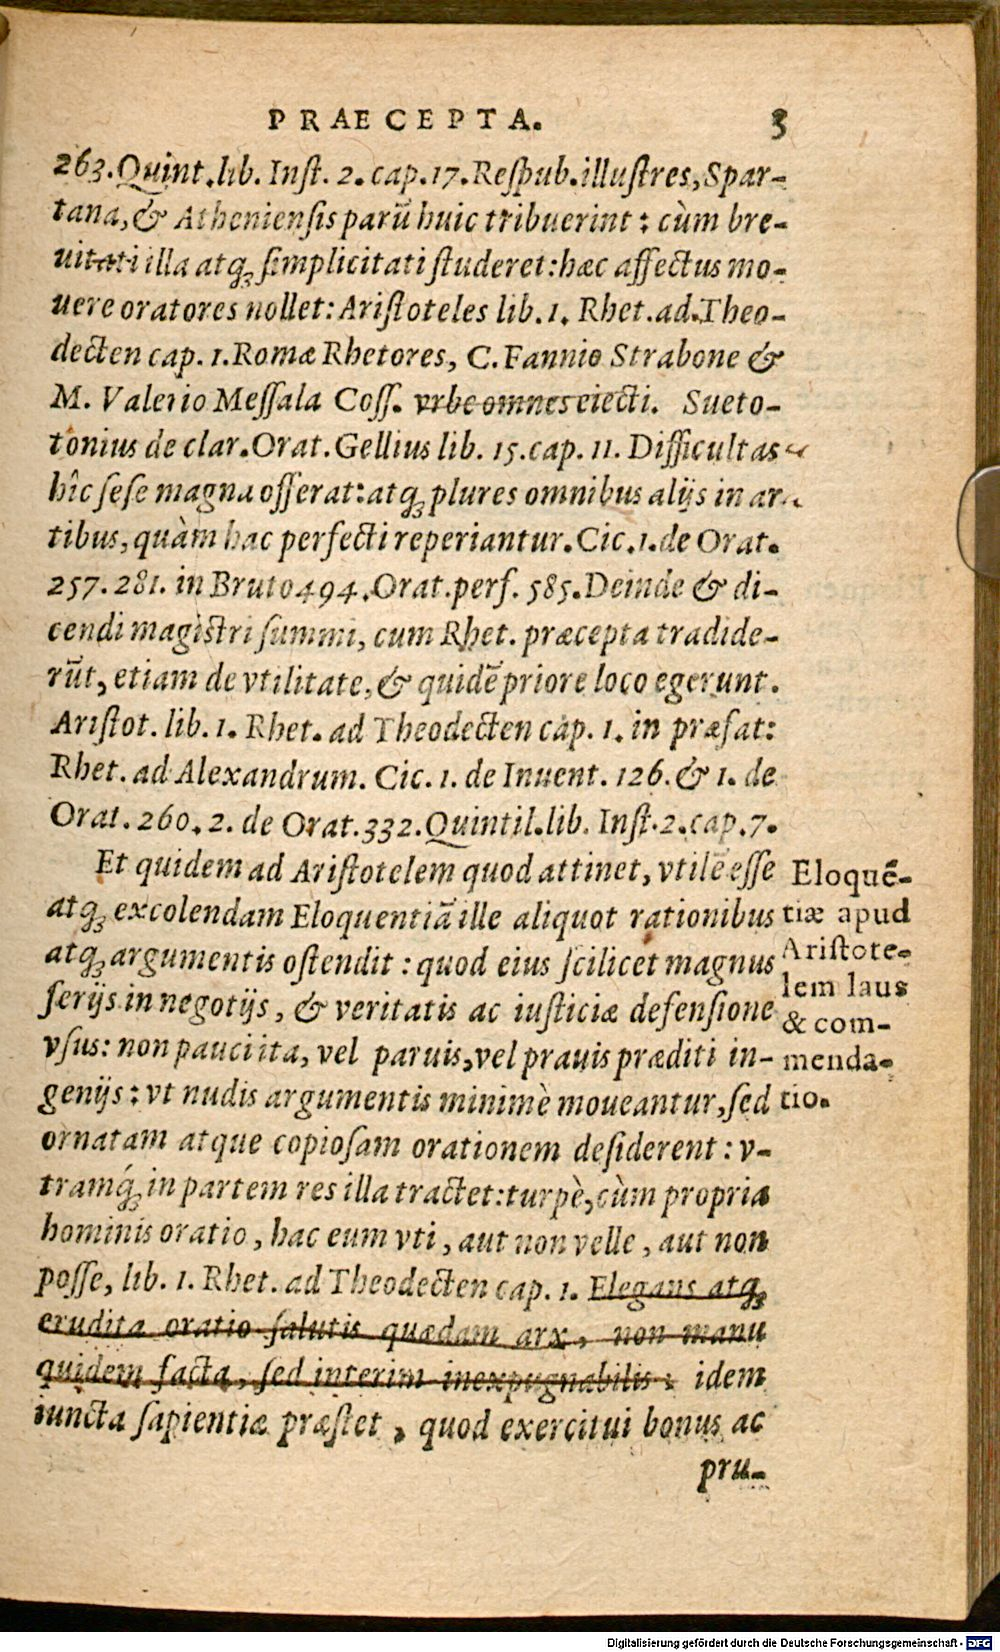 PRAECEPTA. 3
263. Quint. lib. Inst. 2. cap. 17. Respub. illustres, Spar-
tana, & Atheniensis parũ huic tribuerint: cùm bre-
uitati illa atq; simplicitati studeret: hæc affectus mo-
uere oratores nollet: Aristoteles lib. 1. Rhet. ad. Theo-
decten cap. 1. Romæ Rhetores, C. Fannio Strabone &
M. Valerio Messala Coss. vrbe omnes eiecti. Sueto-
tonius de clar. Orat. Gellius lib. 15. cap. 11. Difficultas
hîc sese magna offerat: atq; plures omnibus alijs in ar
tibus, quàm hac perfecti reperiantur. Cic. 1. de Orat.
257. 281. in Bruto 494. Orat. perf. 585. Deinde & di-
cendi magistri summi, cum Rhet. præcepta tradide-
rũt, etiam de vtilitate, & quidẽ priore loco egerunt.
Aristot. lib. 1. Rhet. ad Theodecten cap. 1. in præfat:
Rhet. ad Alexandrum. Cic. 1. de Inuent. 126. & 1. de
Orat. 260. 2. de Orat. 332. Quintil. lib. Inst. 2. cap. 7.
Et quidem ad Aristotelem quod attinet, vtilẽ esse
atq; excolendam Eloquentiã ille aliquot rationibus
atq; argumentis ostendit: quod eius scilicet magnus
serijs in negotijs, & veritatis ac iusticiæ defensione
vsus: non pauci ita, vel paruis, vel prauis præditi in-
genijs: vt nudis argumentis minimè moueantur, sed
ornatam atque copiosam orationem desiderent: v-
tramq́; in partem res illa tractet: turpè, cùm propria
hominis oratio, hac eum vti, aut non velle, aut non
posse, lib. 1. Rhet. ad Theodecten cap. 1. Elegans atq;
erudita oratio salutis quædam arx, non manu
quidem facta, sed interim inexpugnabilis: idem
iuncta sapientiæ præstet, quod exercitui bonus ac
pru-
Eloquẽ-
tiæ apud
Aristote-
lem laus
& com-
menda-
tio.
Digitalisierung gefördert durch die Deutsche Forschungsgemeinschaft - DFG